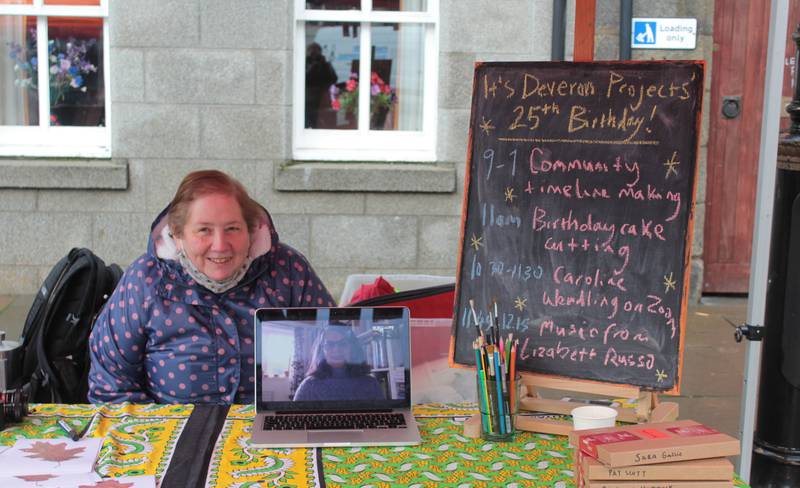 Loading
only
It's Deveron Projects'
25th Birthday!
9-1 Community
timeline making
11am Birthday cake
cutting
10.30-11.30 Caroline
Wendling on Zoom
11.45-12.15 Music from
Elizabett Russo
SARA GALLIE
PAT SCOTT